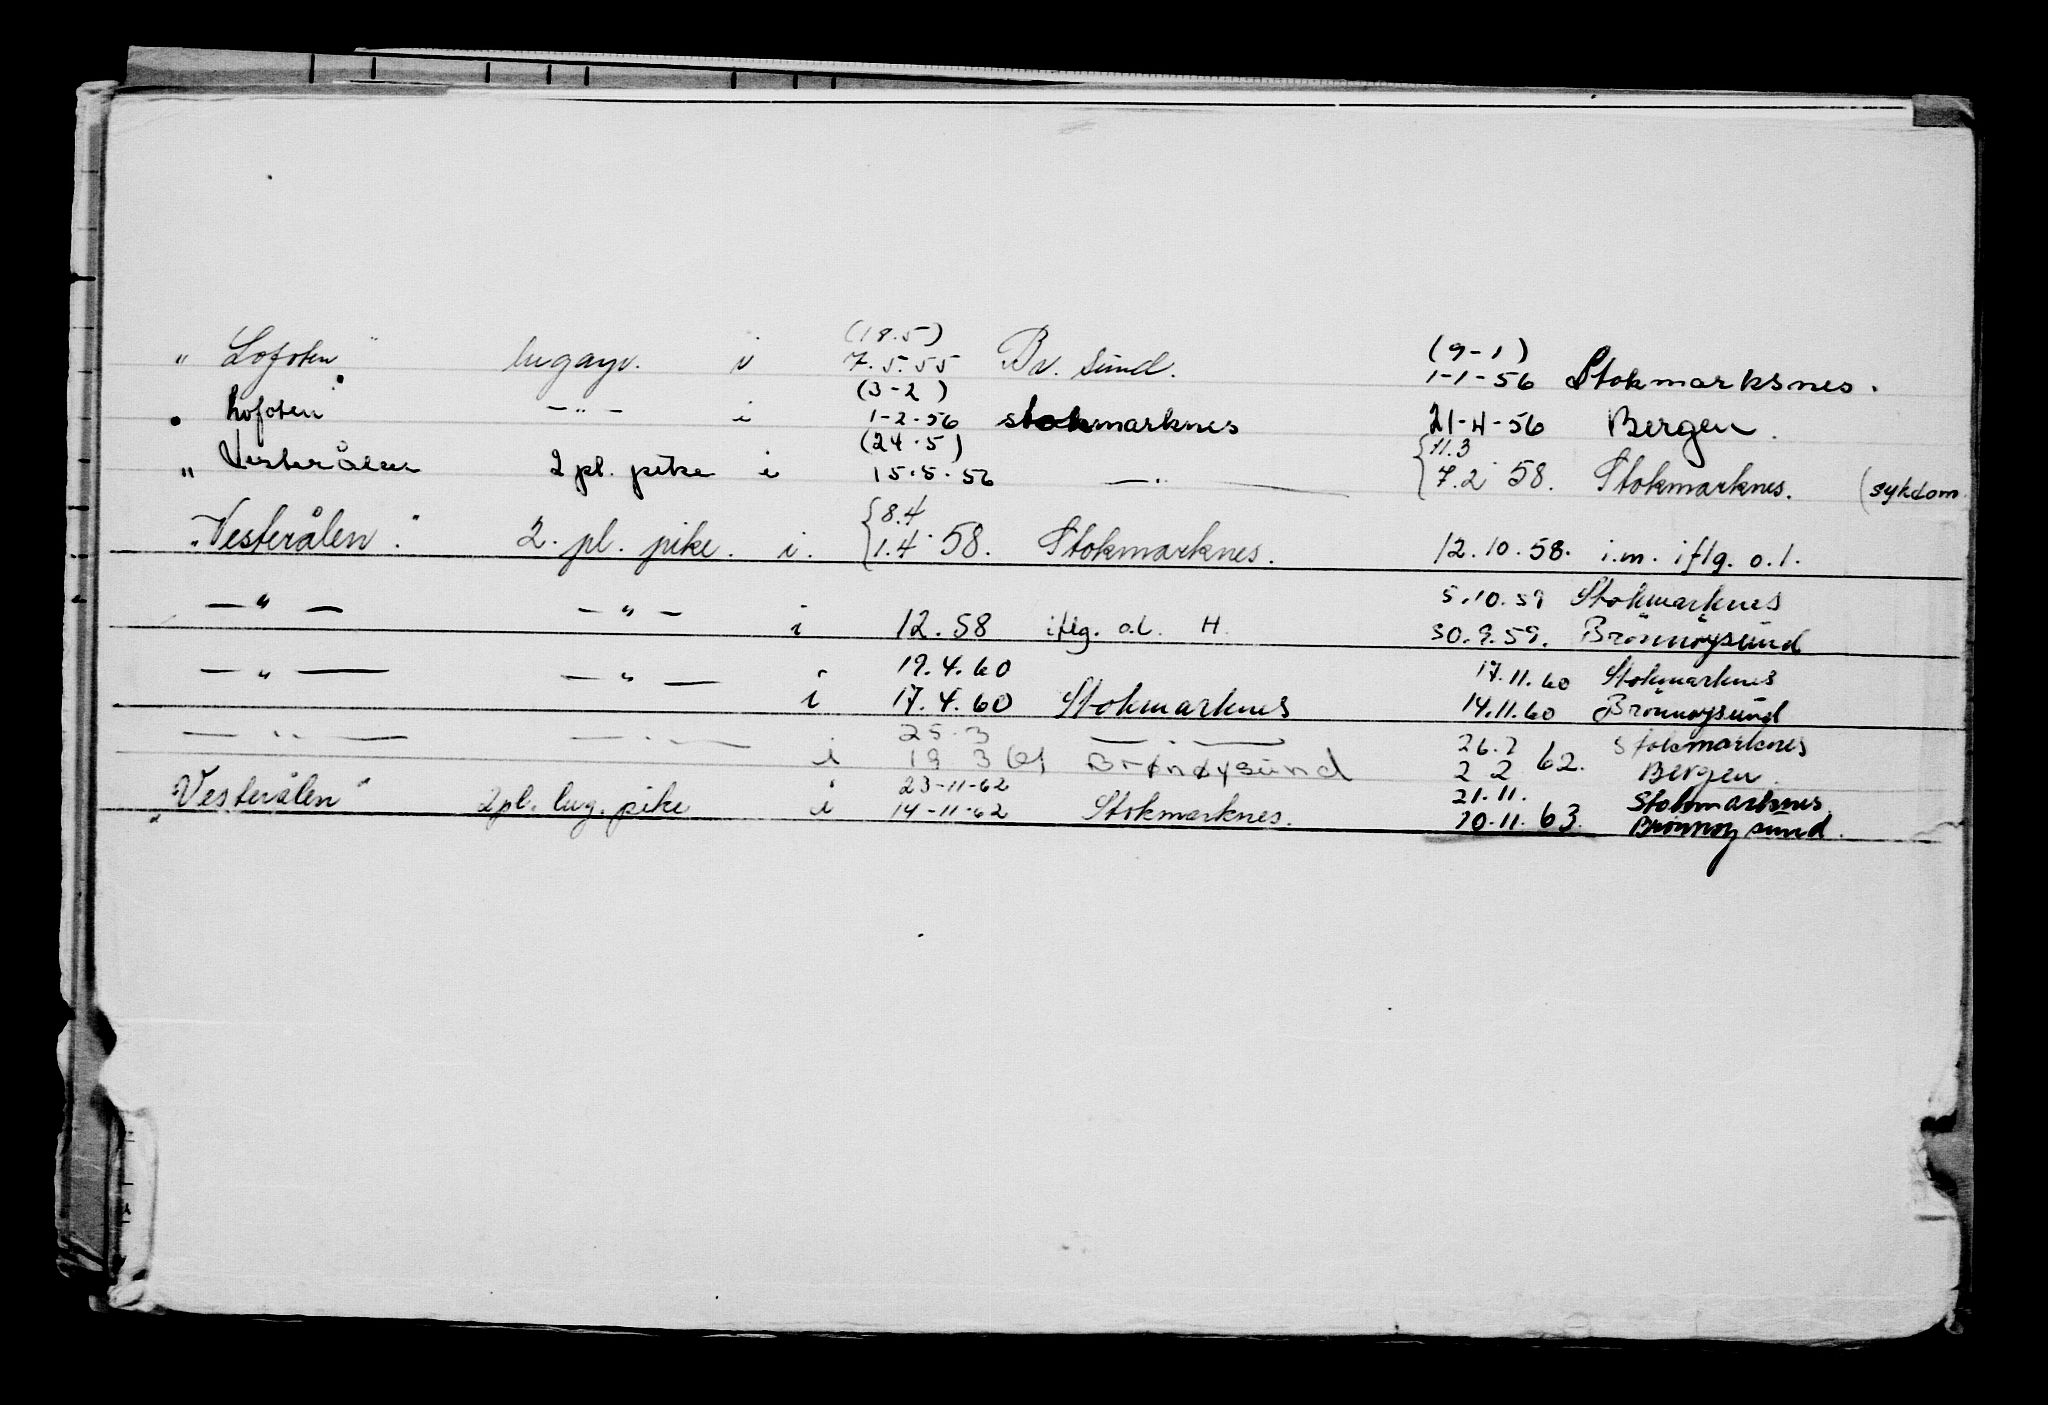 (18.5)
" Lofoten " lugarp. i 7.5.55 Br. sund. (9-1) 1-1-56 Stokmarksnes.
(3-2)
" Lofoten " -"- i 1-2-56 stokmarknes 21-4-56 Bergen.
(24.5) {11.3
" Vesterålen 2 pl. pike i 15.5.56 -"- 7.2 58. Stokmarknes. (sykdom
{8.4
"Vesterålen". 2. pl. pike. i. 1.4 58. Stokmarknes. 12.10.58. i.m. iflg. o.l.
5.10.59 Stokmarknes
-"- -"- i 12.58 iflg. o.l. H. 30.9.59. Brønnøysund
-"- -"- 19.4.60 17.11.60 Stokmarknes
i 17.4.60 Stokmarknes 14.11.60 Brønnøysund
-"- -"- 25.3 -"- 26.2 Stokmarknes
i 19.3 61 Brønøysund 2.2 62. Bergen.
23-11-62 21.11. Stokmarknes
"Vesterålen" 2pl. lug. pike i 14-11-62 Stokmarknes. 10.11.63. Brønnøysund.